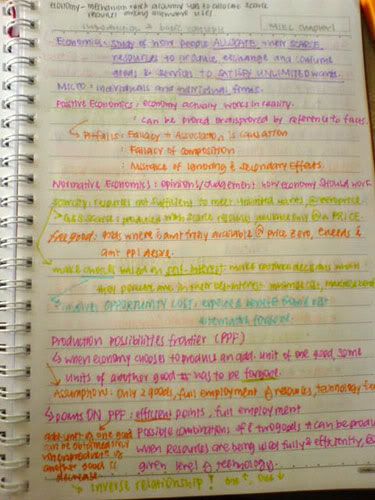 economy - mechanism which allocates scarce
resources among alternative uses
Introduction & basic concepts MICRO Chapter 1
Economics: study of how people ALLOCATE their SCARCE
resources to produce, exchange and consume
goods & services to SATISFY UNLIMITED wants.
MICRO: individuals and individual firms.
Positive Economics: economy actually works in reality.
can be proved or disproved by reference to facts.
Pitfalls: Fallacy → Association is causation
: Fallacy of composition
: Mistake of ignoring 2° secondary effects.
Normative Economics: opinions/judgement how economy should work
scarcity: resources not sufficient to meet unlimited wants @
G&S scarce: produced with scarce resources, available only @ a PRICE.
free good: goods where amt freely available @ price zero, exceeds
amt ppl desire.
make choices based on self-interest: make decisions which
they perceive are in their best-interest
involves OPPORTUNITY COST:
alternative forgone.
Production possibilities frontier (PPF)
when economy chooses to produce an add. unit of one good, some
units of another good has to be forgone.
Assumptions: Only 2 goods, full employment resources, technology
points ON PPF: efficient points, full employment
Possible combinations of 2 goods it can produce
when resources are being used fully & efficiently,
given level technology.
add. unit of one good
can be obtained only
when production of
another good is
decreased
inverse relationship! one ↑, one ↓